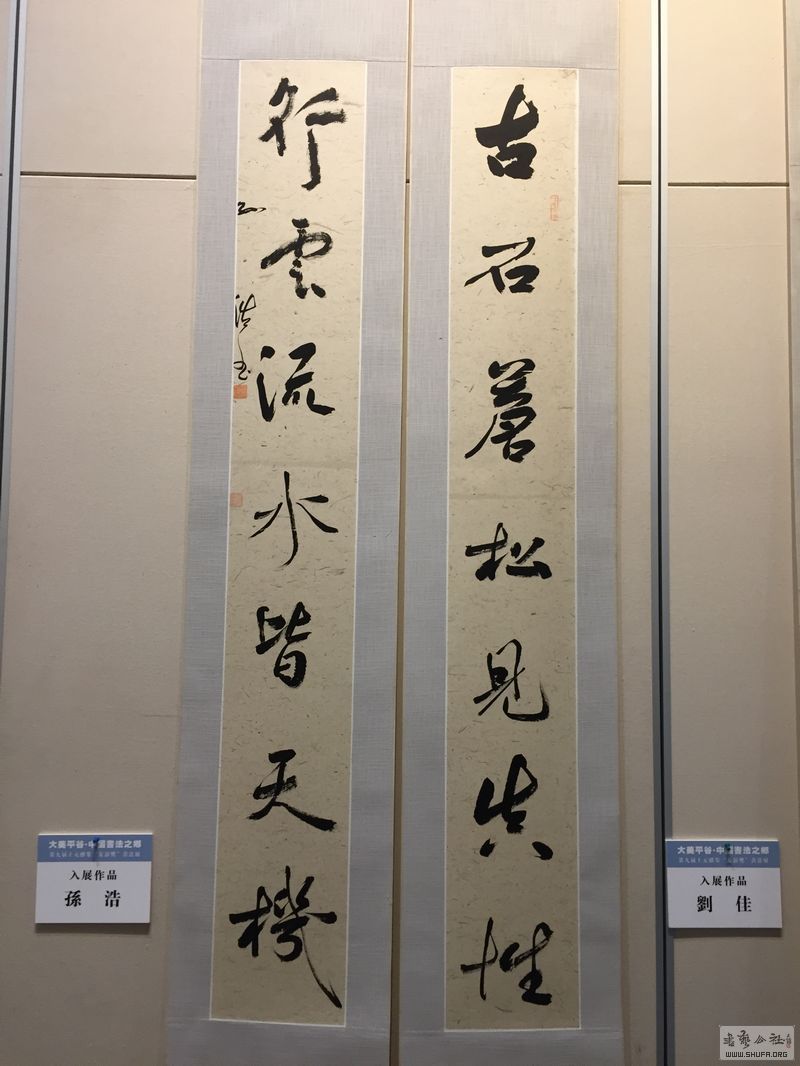 古石蒼松見真性
行雲流水皆天機
孙浩书
大美平谷·中國書法之鄉
入展作品
孫 浩
大美平谷·中國書法之鄉
入展作品
劉 佳
书艺公社
WWW.SHUFA.ORG